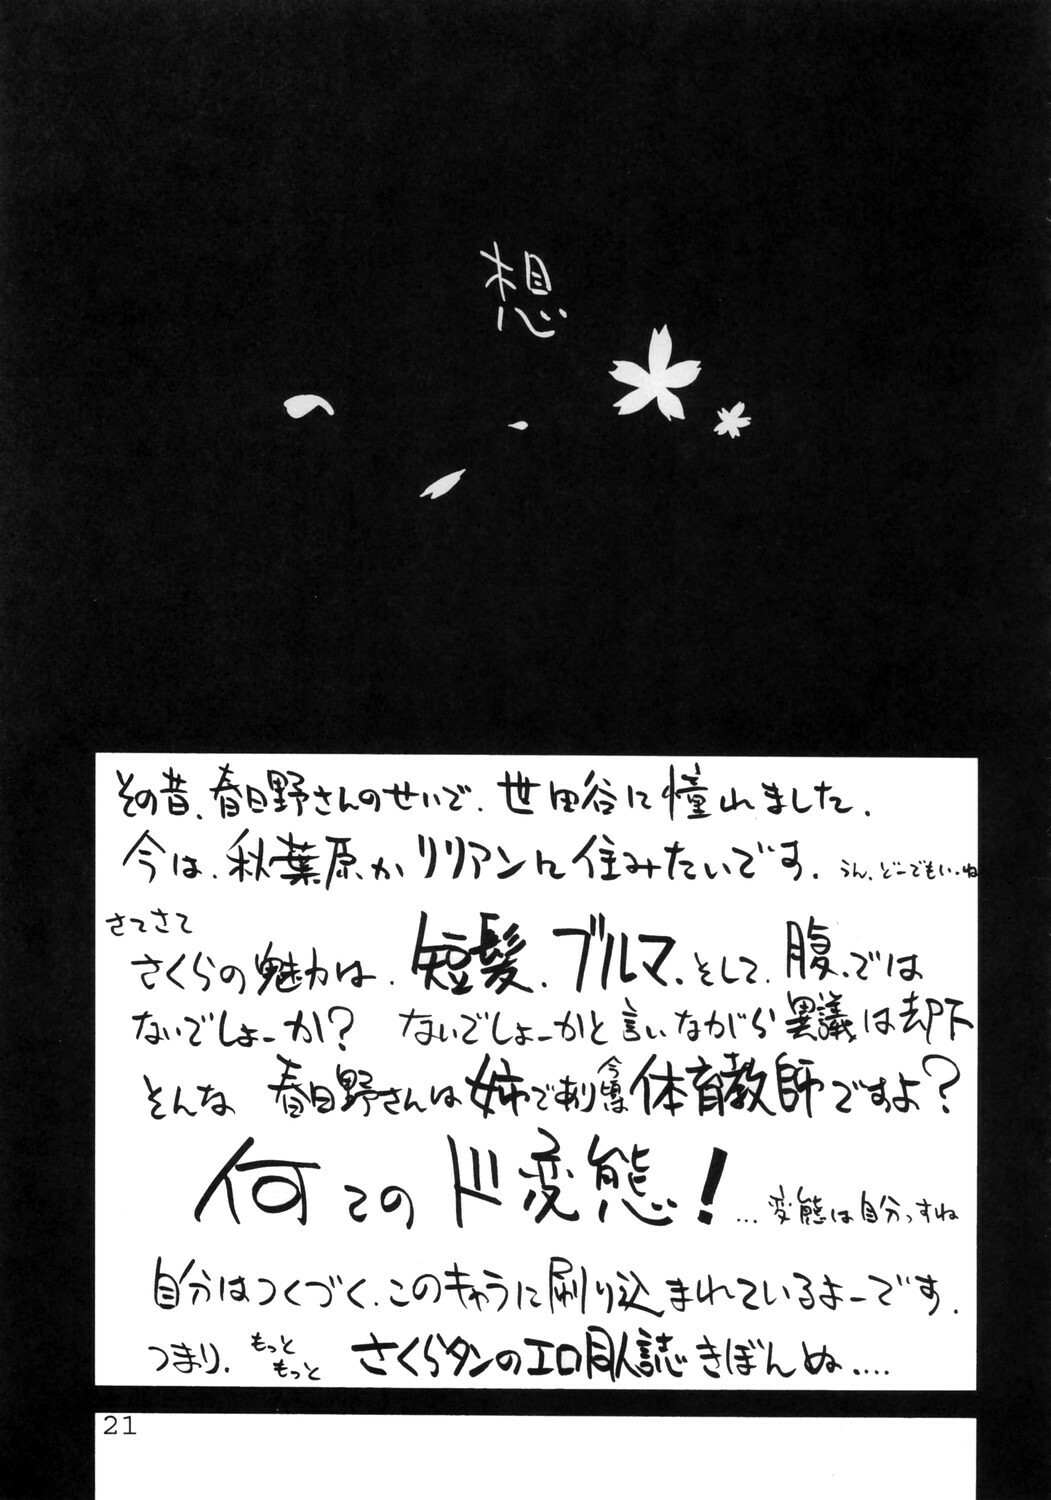 想
その昔、春日野さんのせいで、世田谷に憧れました。
今は、秋葉原かリリアンに住みたいです。うん、どーでもいーね
さてさて
さくらの魅力は、短髪、ブルマ、そして、腹、では
ないでしょーか？ ないでしょーかと言いながら異議は却下
そんな 春日野さんは姉であり今頃は体育教師ですよ？
何てのド変態！…変態は自分っすね
自分はつくづく、このキャラに刷り込まれているよーです。
つまり、もっともっと さくらタンのエロ同人誌きぼんぬ….
21